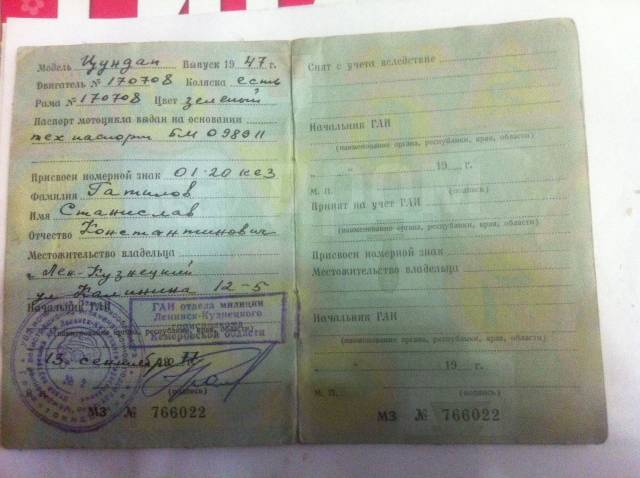 Модель Цундап Выпуск 1947 г.
Двигатель № 170708 Коляска есть
Рама № 170708 Цвет зеленый
Паспорт мотоцикла выдан на основании
тех паспорт БМ 098911
Присвоен номерной знак 01-20 кез
Фамилия Гатилов
Имя Станислав
Отчество Константинович
Местожительство владельца
г Лен-Кузнецкий
ул Калинина 12-5
Начальник ГАИ
ГАИ отдела милиции
Ленинск-Кузнецкого
Кемеровской области
(наименование органа, республики, края, области)
13 сентября
(подпись)
МЗ № 766022
Снят с учета вследствие
Начальник ГАИ
(наименование органа, республики, края, области)
„ “ 19 г.
М. П. (подпись)
Принят на учет ГАИ
(наименование органа, республики, края, области)
Присвоен номерной знак
Местожительство владельца
Начальник ГАИ
(наименование органа, республики, края, области)
„ “ 19 г.
М. П. (подпись)
МЗ № 766022